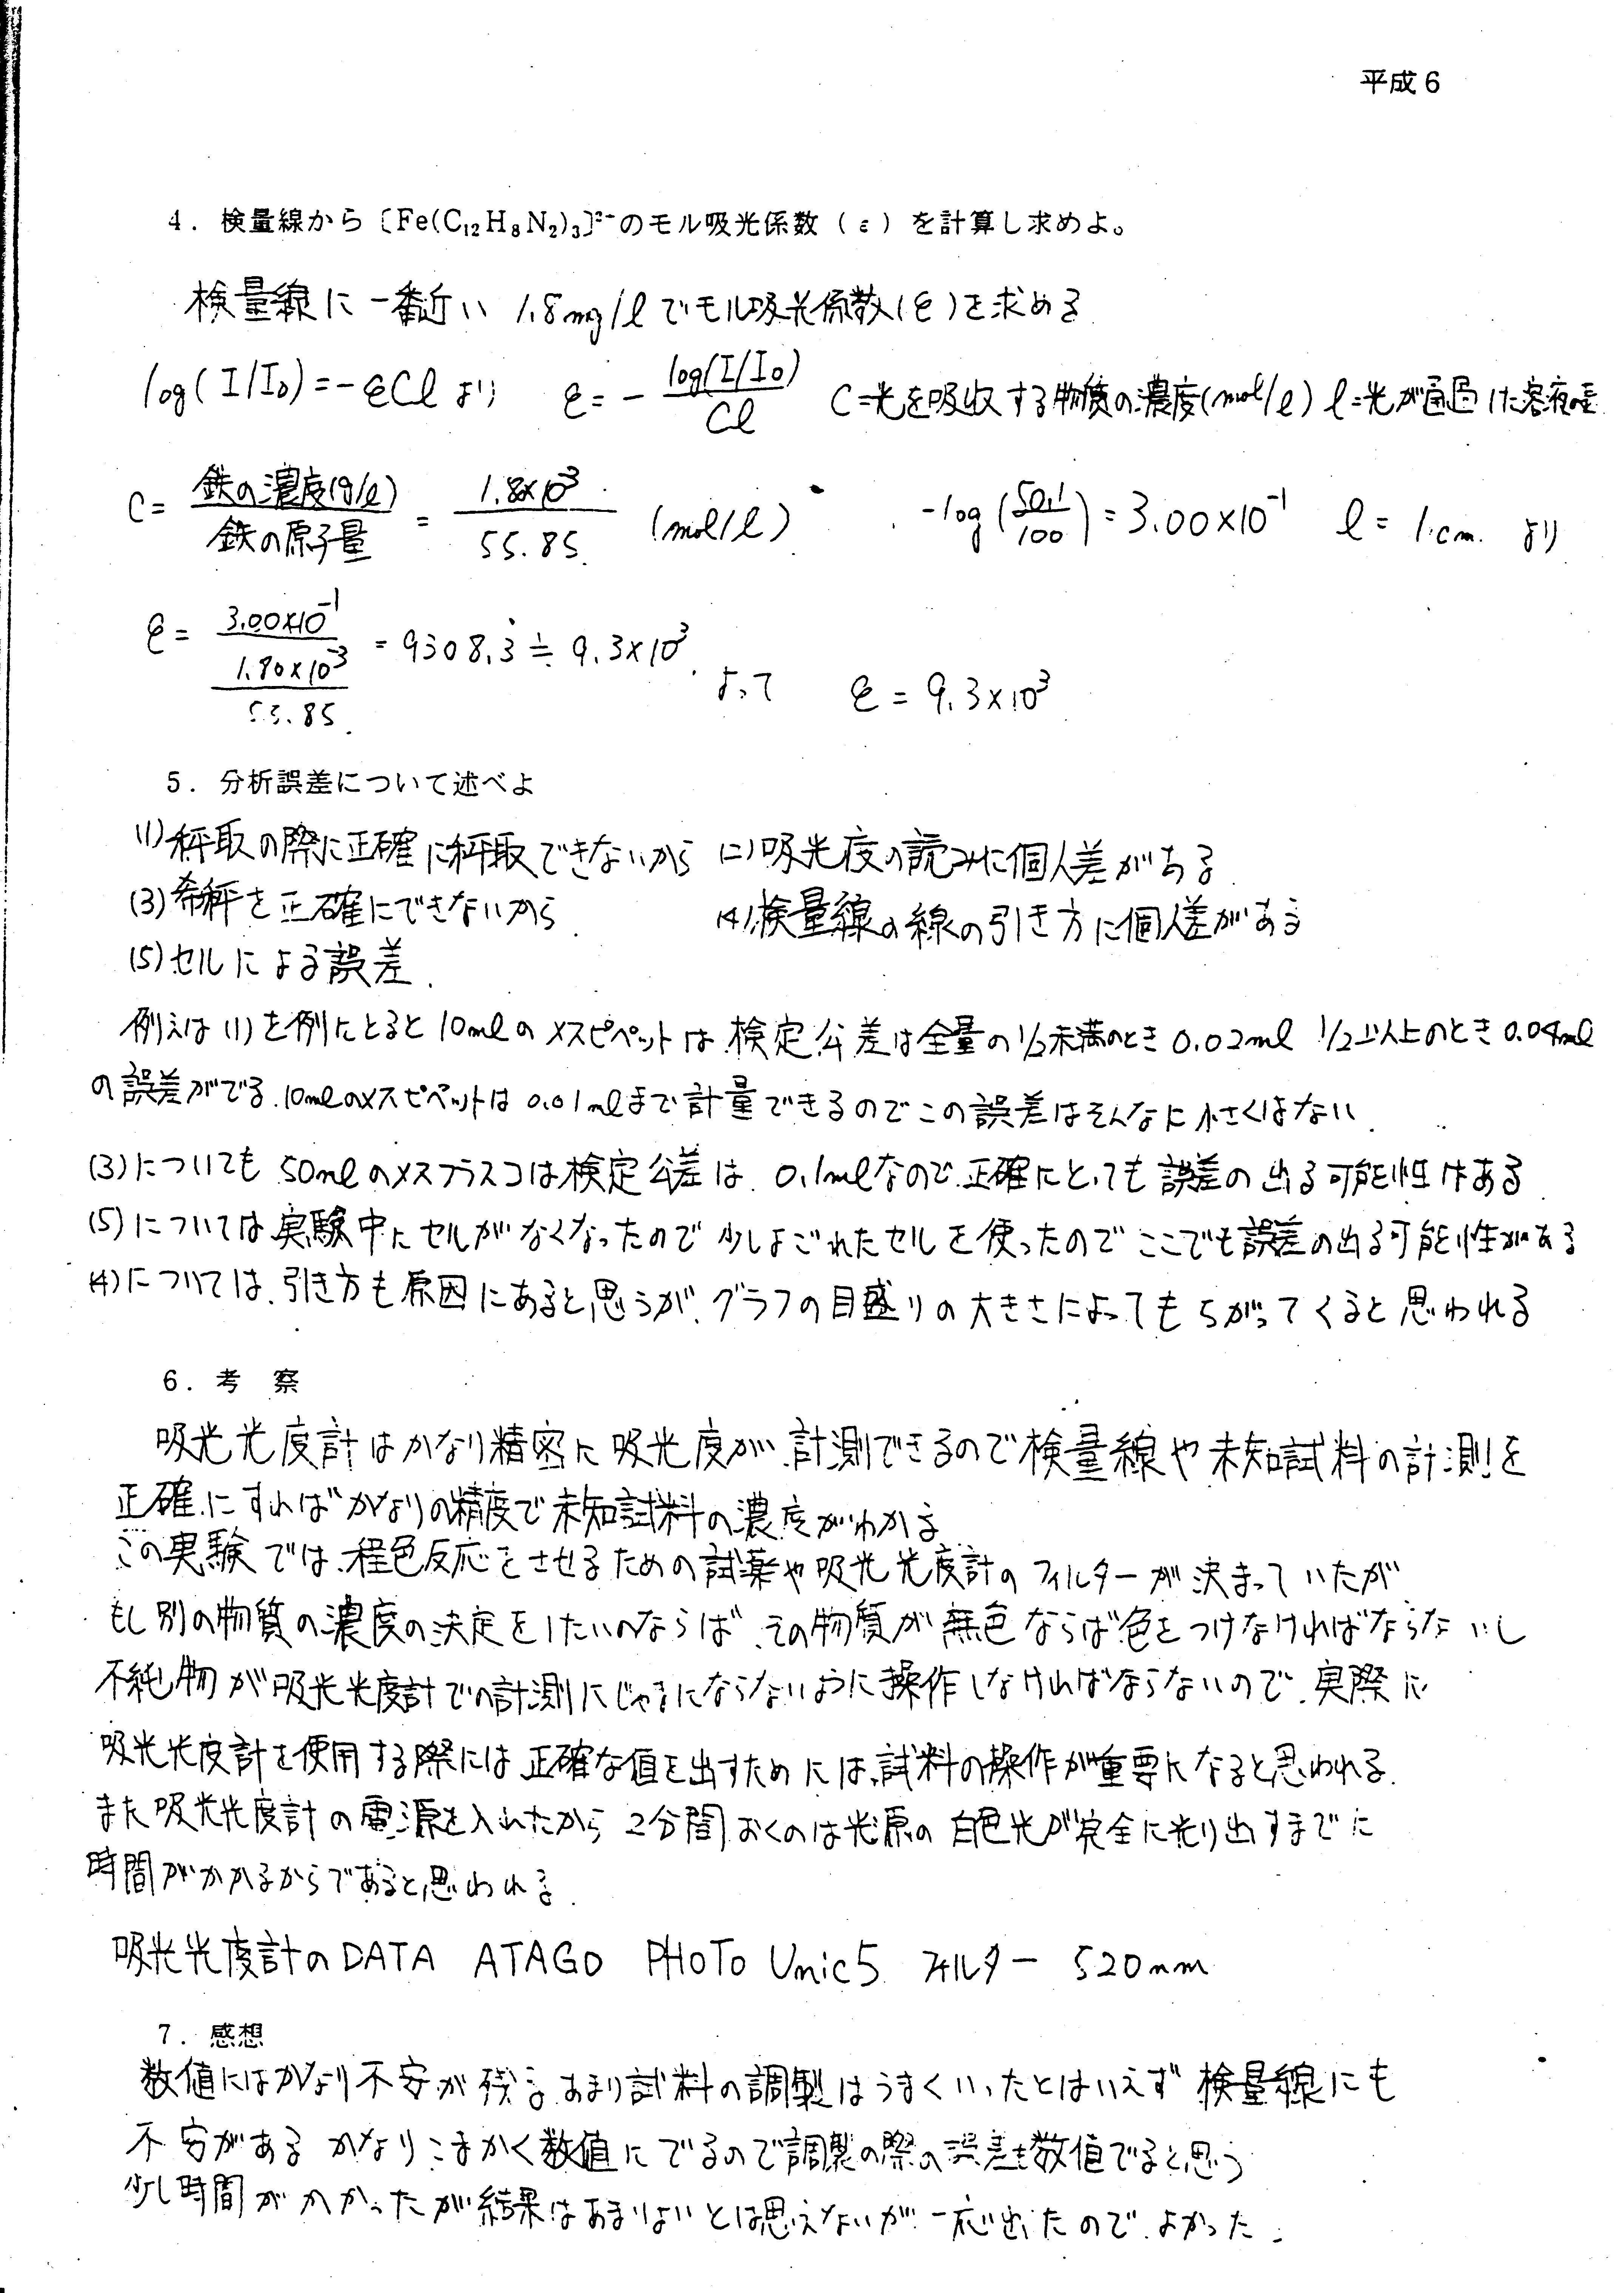 平成6
4. 検量線から〔Fe(C₁₂H₈N₂)₃〕²⁻のモル吸光係数(ε)を計算し求めよ。
検量線に一番近い 1.8mg/lでモル吸光係数(ε)を求める
log(I/I₀)=-εCl より ε= - log(I/I₀) / Cl C=光を吸収する物質の濃度(mol/l) l=光が通過した溶液の
C= 鉄の濃度(g/l) / 鉄の原子量 = 1.8×10⁻³ / 55.85 (mol/l) -log(50.1/100)=3.00×10⁻¹ l= 1cm より
ε= 3.00×10⁻¹ / (1.80×10⁻³ / 55.85) = 9308.3 ≒ 9.3×10³ よって ε = 9.3×10³
5. 分析誤差について述べよ
(1)秤取の際に正確に秤取できないから (2)吸光度の読みに個人差がある
(3)希秤を正確にできないから (4)検量線の線の引き方に個人差がある
(5)セルによる誤差.
例えば(1)を例にとると10mlのメスピペットは検定公差は全量の1/2未満のとき0.02ml 1/2以上のとき0.04ml
の誤差がでる.10mlのメスピペットは0.01mlまで計量できるのでこの誤差はそんなに小さくはない.
(3)についても50mlのメスフラスコは検定公差は 0.1mlなので正確にとっても誤差の出る可能性はある
(5)については実験中にセルがなくなったので少しよごれたセルを使ったのでここでも誤差の出る可能性がある
(4)については、引き方も原因にあると思うが、グラフの目盛りの大きさによってもちがってくると思われる
6. 考 察
吸光光度計はかなり精密に吸光度が計測できるので検量線や未知試料の計測を
正確にすればかなりの精度で未知試料の濃度がわかる
この実験では、程色反応をさせるための試薬や吸光光度計のフィルターが決まっていたが
もし別の物質の濃度の決定をしたいのならば、その物質が無色ならば色をつけなければならないし
不純物が吸光光度計での計測にじゃまにならないように操作しなければならないので、実際に
吸光光度計を使用する際には正確な値を出すためには、試料の操作が重要になると思われる.
また吸光光度計の電源を入れたから2分間おくのは光源の白色光が完全に光り出すまでに
時間がかかるからであると思われる.
吸光光度計のDATA ATAGO PHOTO Unic5 フィルター 520nm
7. 感想
数値にはかなり不安が残る.あまり試料の調製はうまくいったとはいえず検量線にも
不安がある かなりこまかく数値にでるので調製の際の誤差も数値でると思う
少し時間がかかったが結果はあまりよいとは思えないが一応出たのでよかった.